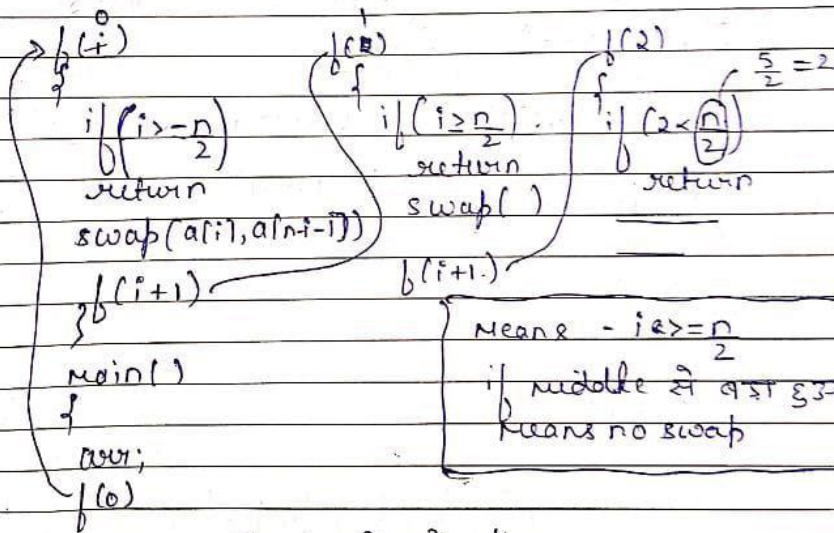 0
f(i)
{
if (i >= n/2)
return
swap(a[i], a[n-i-1])
f(i+1)
}
main()
{
arr;
f(0)
1
f(1)
{
if (i ≥ n/2).
return
swap( )
f(i+1)
f(2)
{
5/2 = 2
if (2 < n/2)
return
Means - i >= n/2
if middle से बड़ा
Means no swap